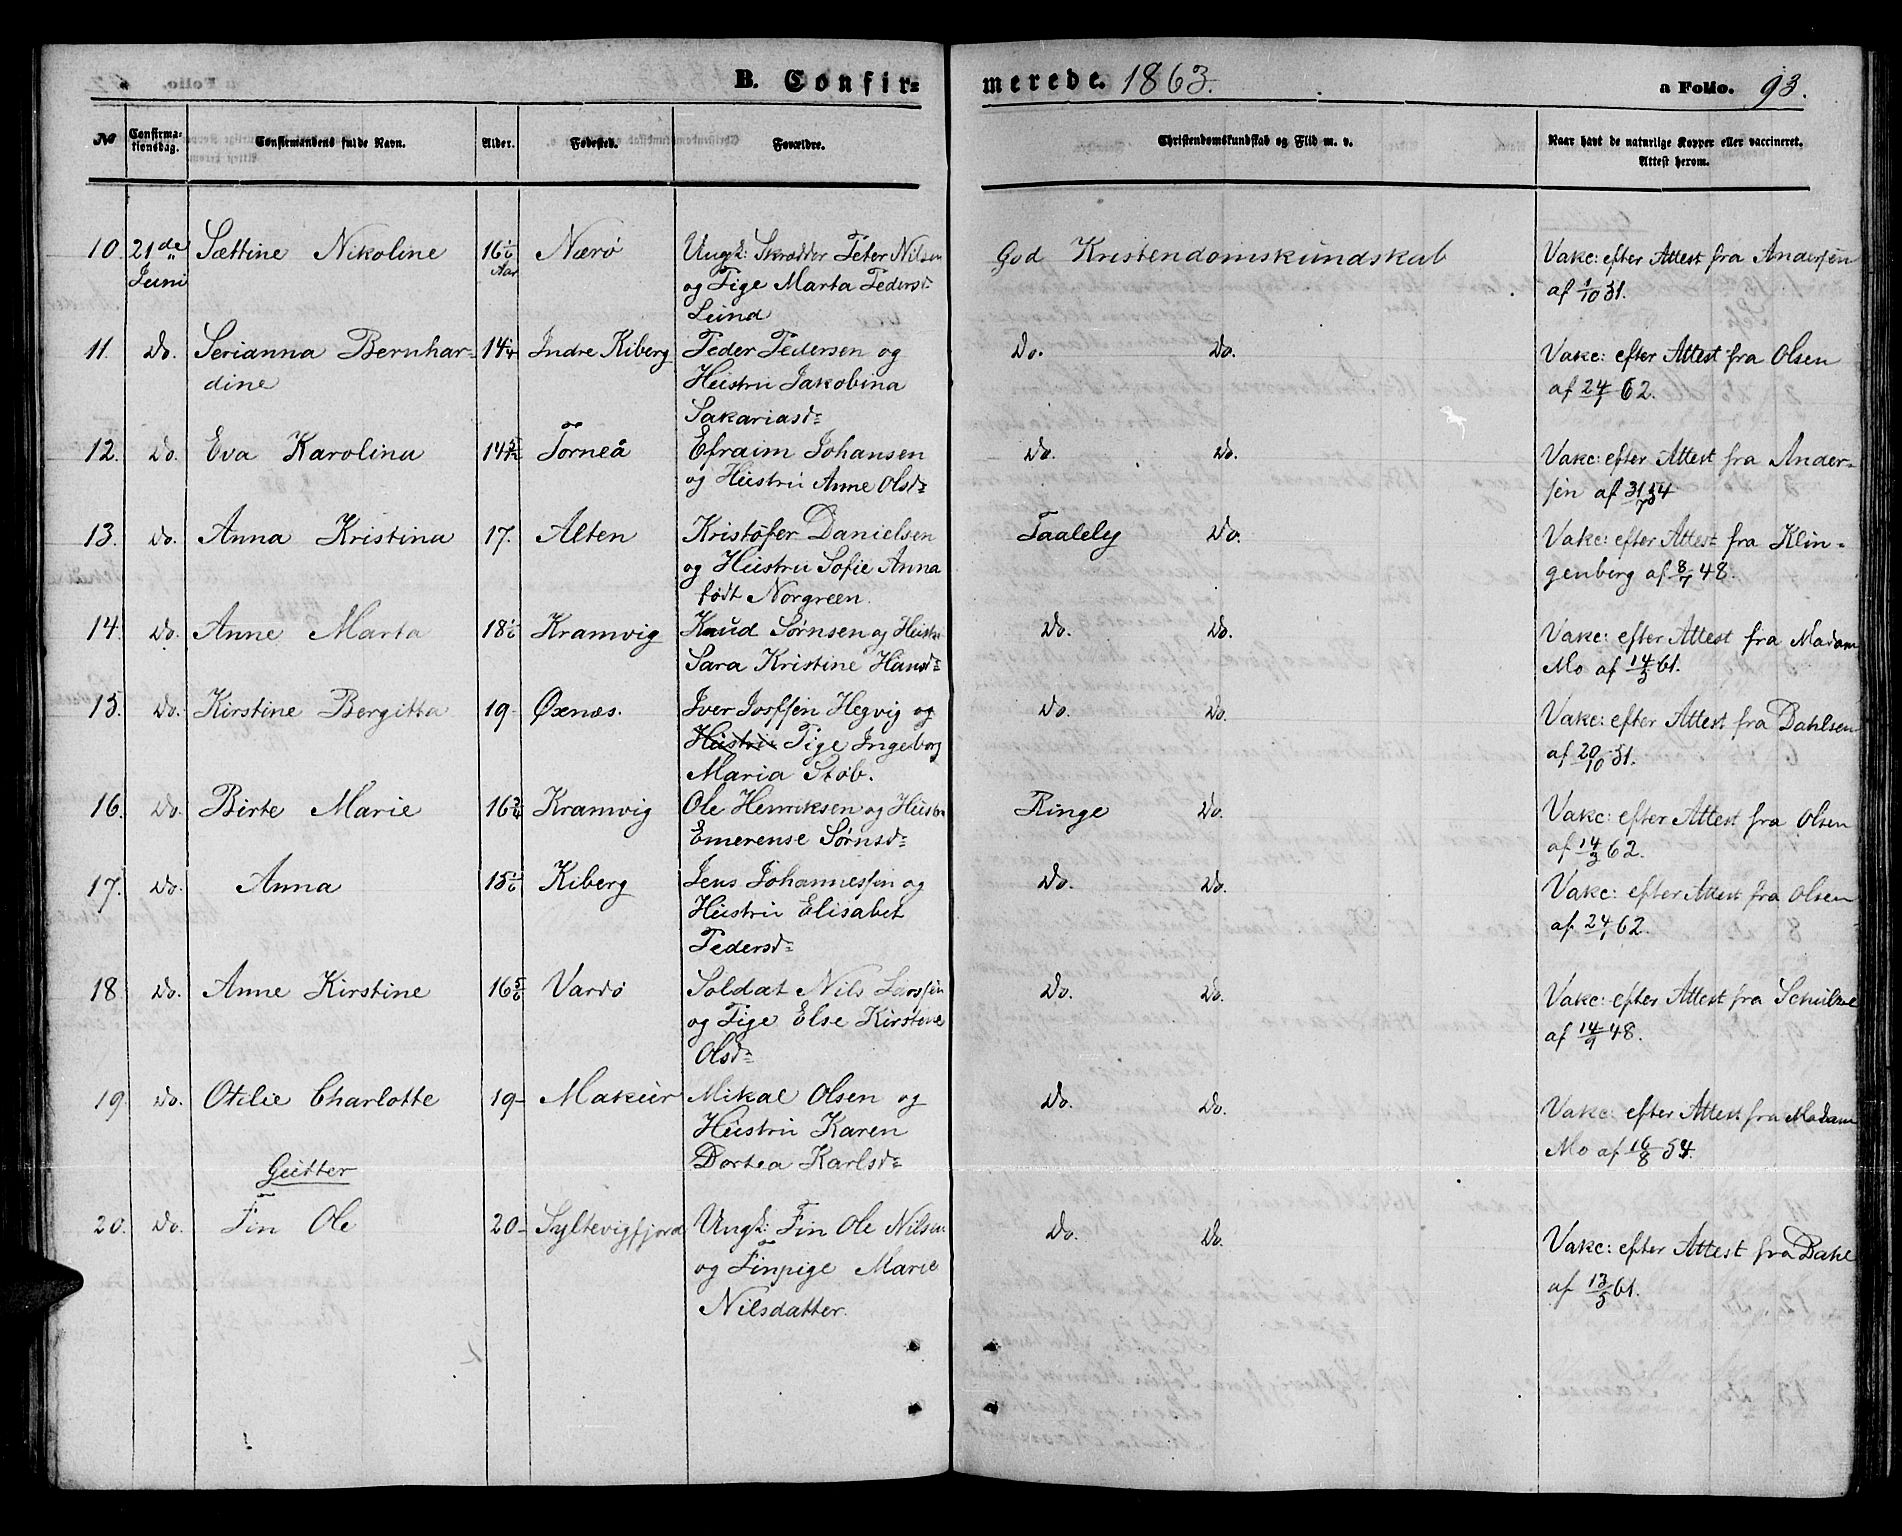 B. Confir=
merede. 1863.
a Folio. 93.
No
Confirma-
tionsdag.
Confirmandens fulde Navn.
Alder.
Fødested.
Forældre.
Christendomskundskab og Flid m. v.
Naar havt de naturlige Kopper eller vaccineret.
Attest herom.
10. 21de Sættine Nikoline 16 1/6 Nærø Ungk: Skrædder Peter Nilsen God Kristendomskundskab Vakc: efter Attest fra Andersen
Juni Aar og Pige Marta Pedersd= af 1/10 51.
Lund
11. Do. Serianna Bernhar- 14 1/4 Indre Kiberg Peder Pedersen og Do. Do. Vakc: efter Attest fra Olsen
dine Hustru Jakobina af 24/1 62.
Sakariasd=
12. Do. Eva Karolina 14 5/12 Torneå Efraim Johansen Do. Do. Vakc: efter Attest fra Ander-
og Hustru Anne Olsd= sen af 31/7 54
13. Do. Anna Kristina 17. Alten Kristofer Danielsen Taalelg Do. Vakc: efter Attest fra Klin-
og Hustru Sofie Anna genberg af 8/7 48.
født Norgreen.
14. Do. Anne Marta 18 1/6 Kramvig Knud Sørnsen og Hustru Do. Do. Vakc: efter Attest fra Madam
Sara Kristine Hansd= Mo af 14/5 61.
15. Do. Kirstine Bergitta 19- Øxnæs. Iver Josefsen Hegvig og Do. Do. Vakc: efter Attest fra Dahlsen
Hustru Pige Ingeborg af 20/10 51.
Maria Stob.
16. Do. Birte Marie 16 3/4 Kramvig Ole Henriksen og Hustru Ringe Do. Vakc: efter Attest fra Olsen
Emerense Sørnsd= af 14/3 62.
17. Do. Anna 15 1/6 Kiberg Jens Johannessen og Do. Do. Vakc: efter Attest fra Olsen
Hustru Elisabet af 24/1 62.
Pedersd=
18. Do. Anne Kirstine 16 5/6 Vardø Soldat Nils Larssen Do. Do. Vakc: efter Attest fra Schulze
og Pige Else Kirstine af 14/9 48.
Olsd=
19 Do. Otilie Charlotte 19- Makur Mikal Olsen og Do. Do. Vakc: efter Attest fra Madam
Hustru Karen Mo af 16/8 54.
Dortea Karlsd=
Gutter
20. Do. Fin Ole 20- Syltevigfjord Ungk: Fin Ole Nilsen Do. Do. Vakc: efter Attest fra Dahl
og Finpige Marie af 13/5 61.
Nilsdatter.